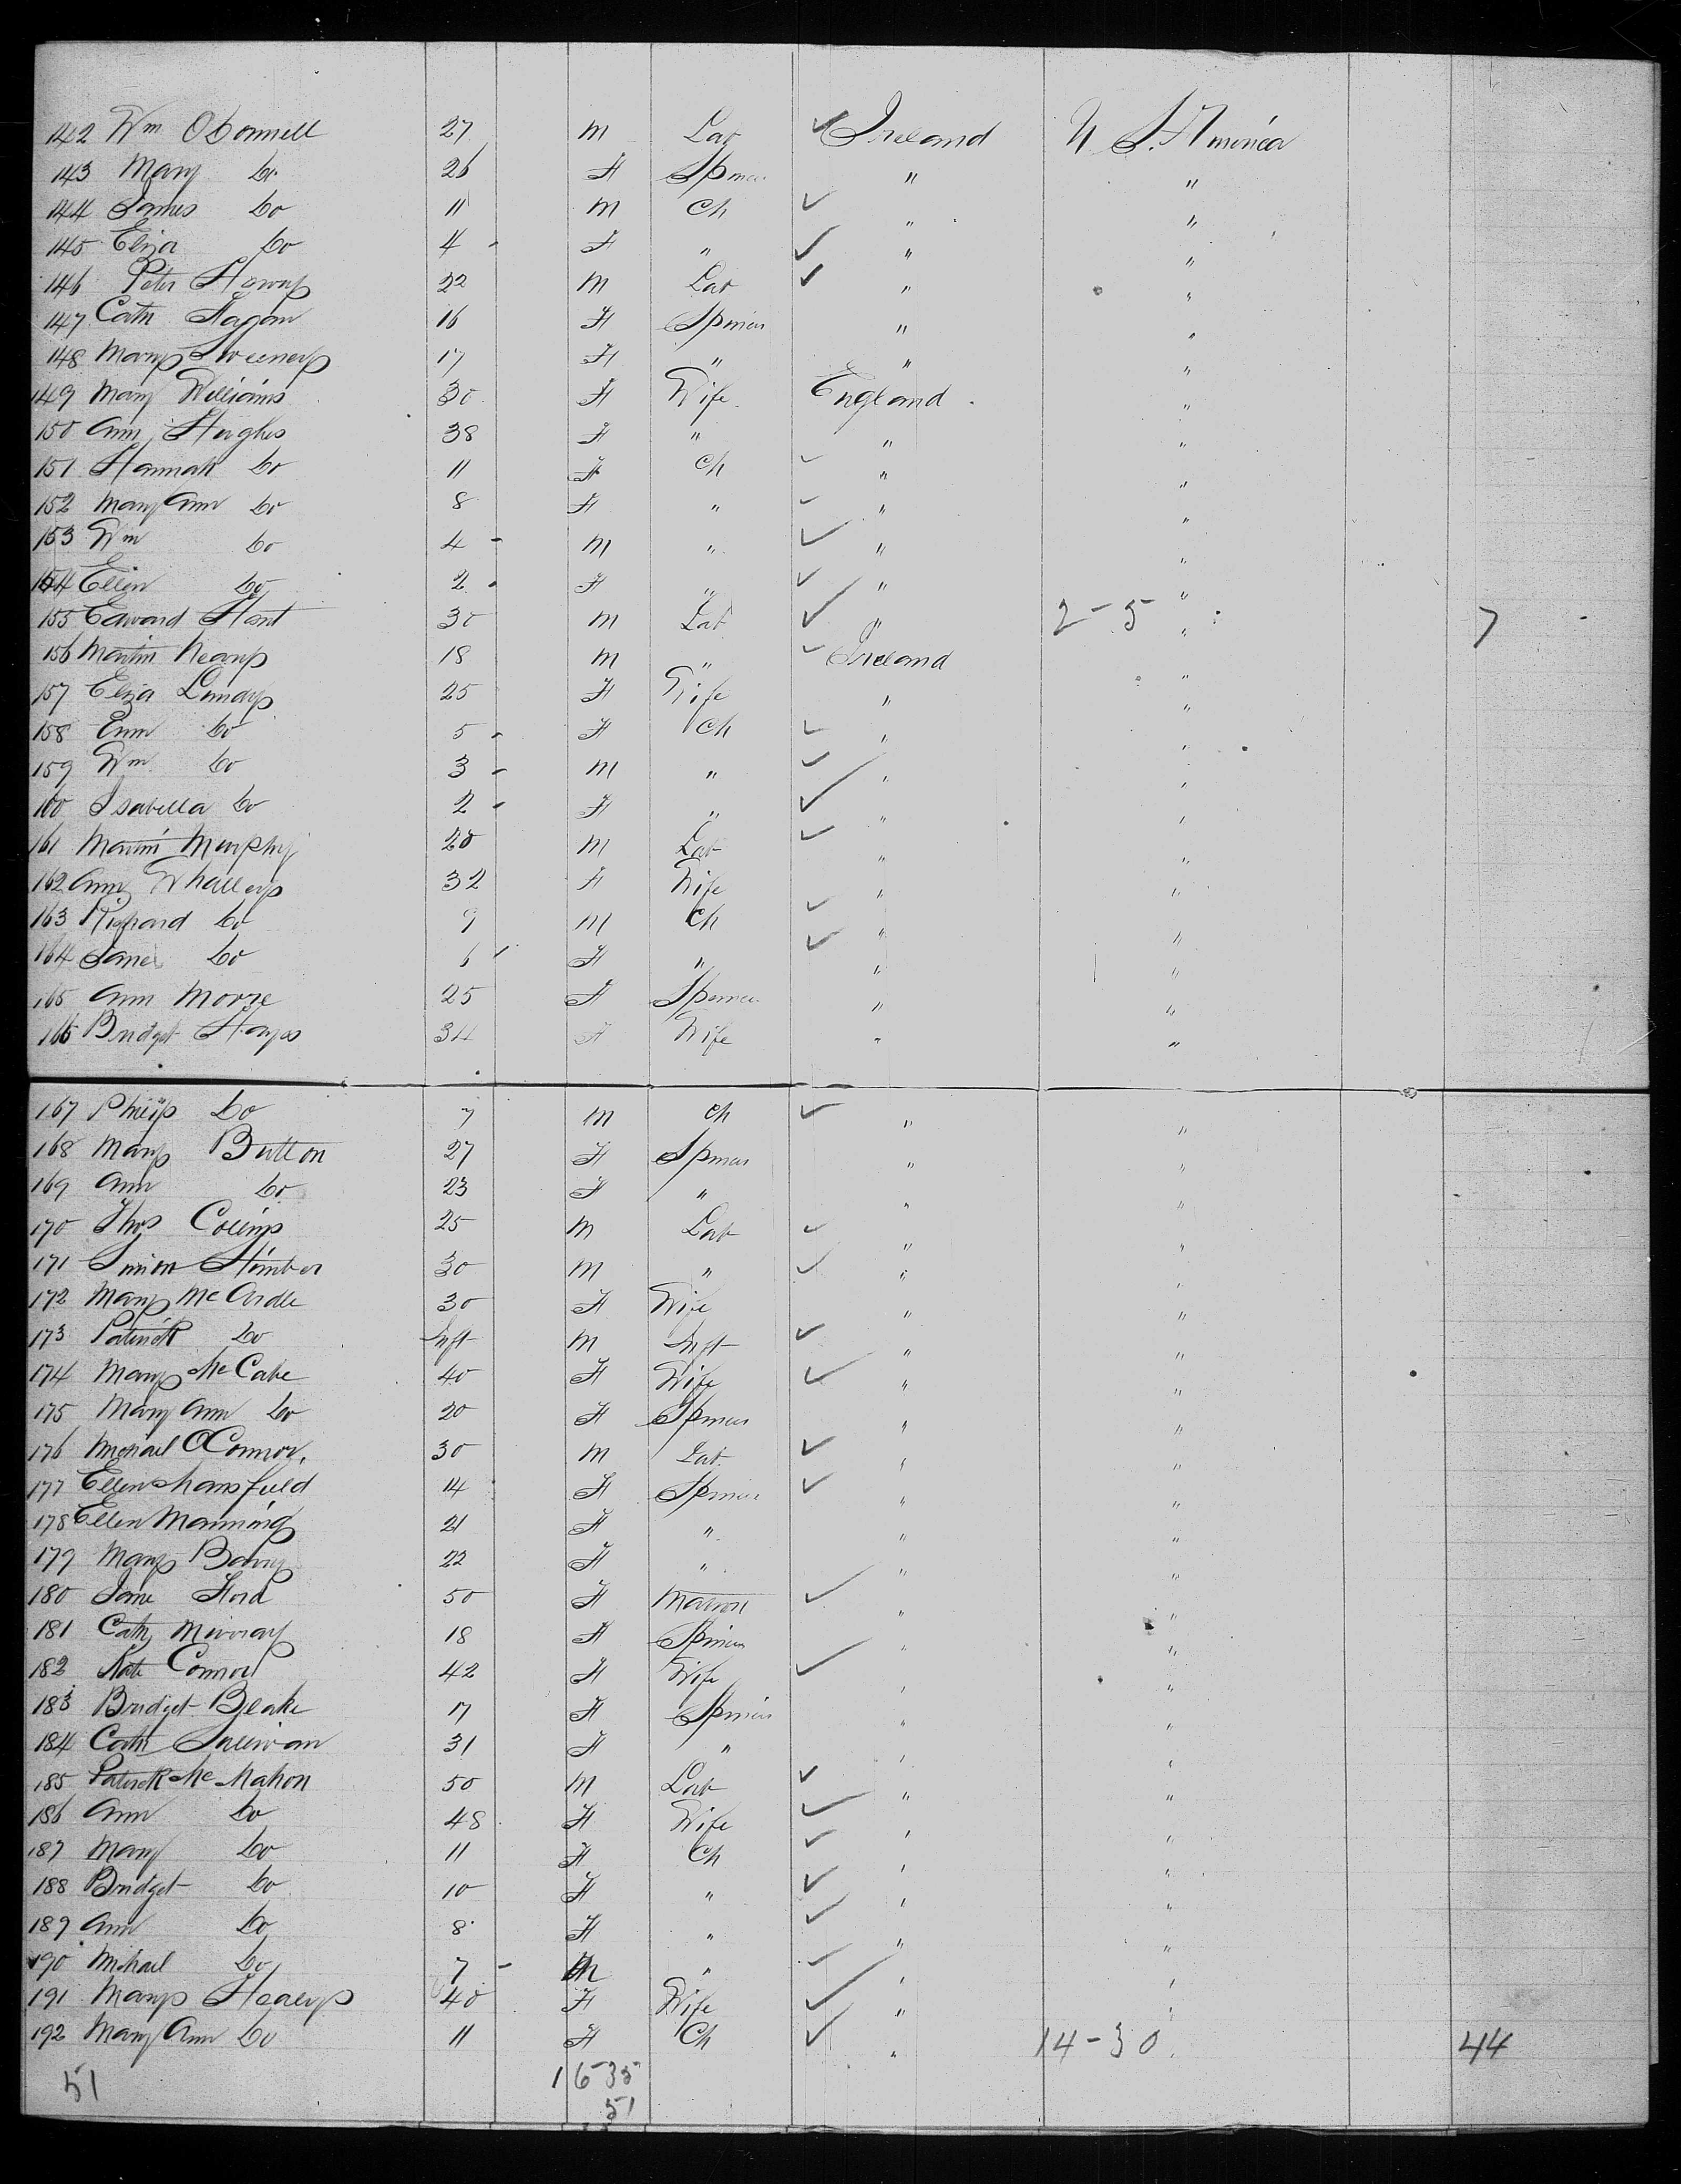 142 Wm ODonnell 27 M Lab Ireland U S. America
143 Mary Do 26 F Spins " "
144 James Do 11 M Ch " "
145 Eliza Do 4 - F " " "
146 Peter 22 M Lab " "
147 Cath Fagan 16 F Spins " "
148 Mary Sweeney 17 F " " "
149 Mary Williams 30 F Wife England "
150 Ann Hughes 38 F " " "
151 Hannah Do 11 F Ch " "
152 Mary Ann Do 8 F " " "
153 Wm Do 4 - M " " "
154 Ellen Do 2 - F " " "
155 Edward 30 M Lab " 2-5 " 7
156 Martin 18 M " Ireland "
157 Eliza Lundy 25 F Wife " "
158 Do 5 - F Ch " "
159 Wm Do 3 - M " " "
160 Isabella Do 2 - F " " "
161 Martin Murphy 20 M Lab " "
162 Ann Whalley 32 F Wife " "
163 Richard Do 9 M Ch " "
164 Jane Do 6 - F " " "
165 Ann 25 F Spins " "
166 Bridget Hayes 34 F Wife " "
167 Philip Do 7 M Ch " "
168 Mary Button 27 F Spins " "
169 Ann Do 23 F " " "
170 Thos Collins 25 M Lab " "
171 Simon 30 M " " "
172 Mary McArdle 30 F Wife " "
173 Patrick Do Inft M Inft " "
174 Mary McCabe 40 F Wife " "
175 Mary Ann Do 20 F Spins " "
176 Michael OConnor, 30 M Lab " "
177 Ellen Mansfield 14 F Spins " "
178 Ellen Manning 21 F " " "
179 Mary Barry 22 F " " "
180 Jane Ford 50 F Matron " "
181 Cath Murray 18 F Spins " "
182 Kate Connor 42 F Wife " "
183 Bridget Blake 17 F Spins " "
184 Cath Sullivan 31 F " " "
185 Patrick McMahon 50 M Lab " "
186 Ann Do 48 F Wife " "
187 Mary Do 11 F Ch " "
188 Bridget Do 10 F " " "
189 Ann Do 8 F " " "
190 Michael Do 7 - M " " "
191 Mary Healey 40 F Wife " "
192 Mary Ann Do 11 F Ch " 14-30 44
51 16-35
51